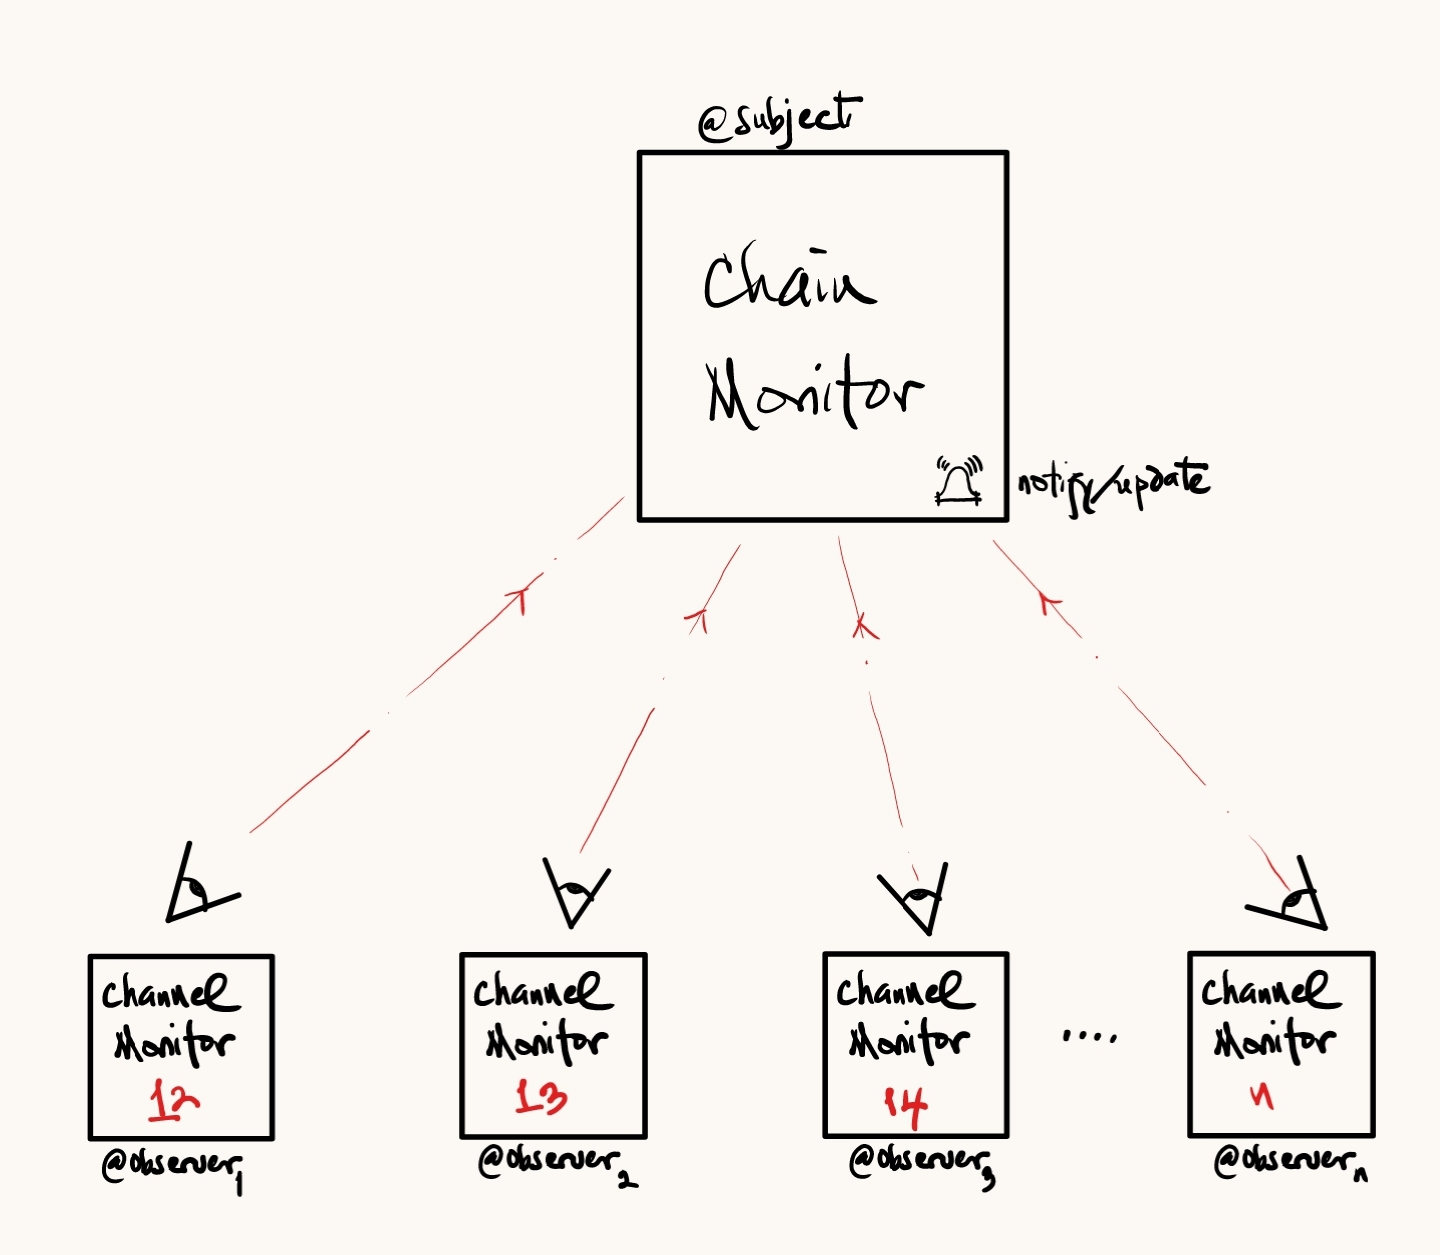 @subject
Chain
Monitor
notify/update
Channel
Monitor
12
@observer1
Channel
Monitor
13
@observer2
Channel
Monitor
14
@observer3
....
Channel
Monitor
n
@observern